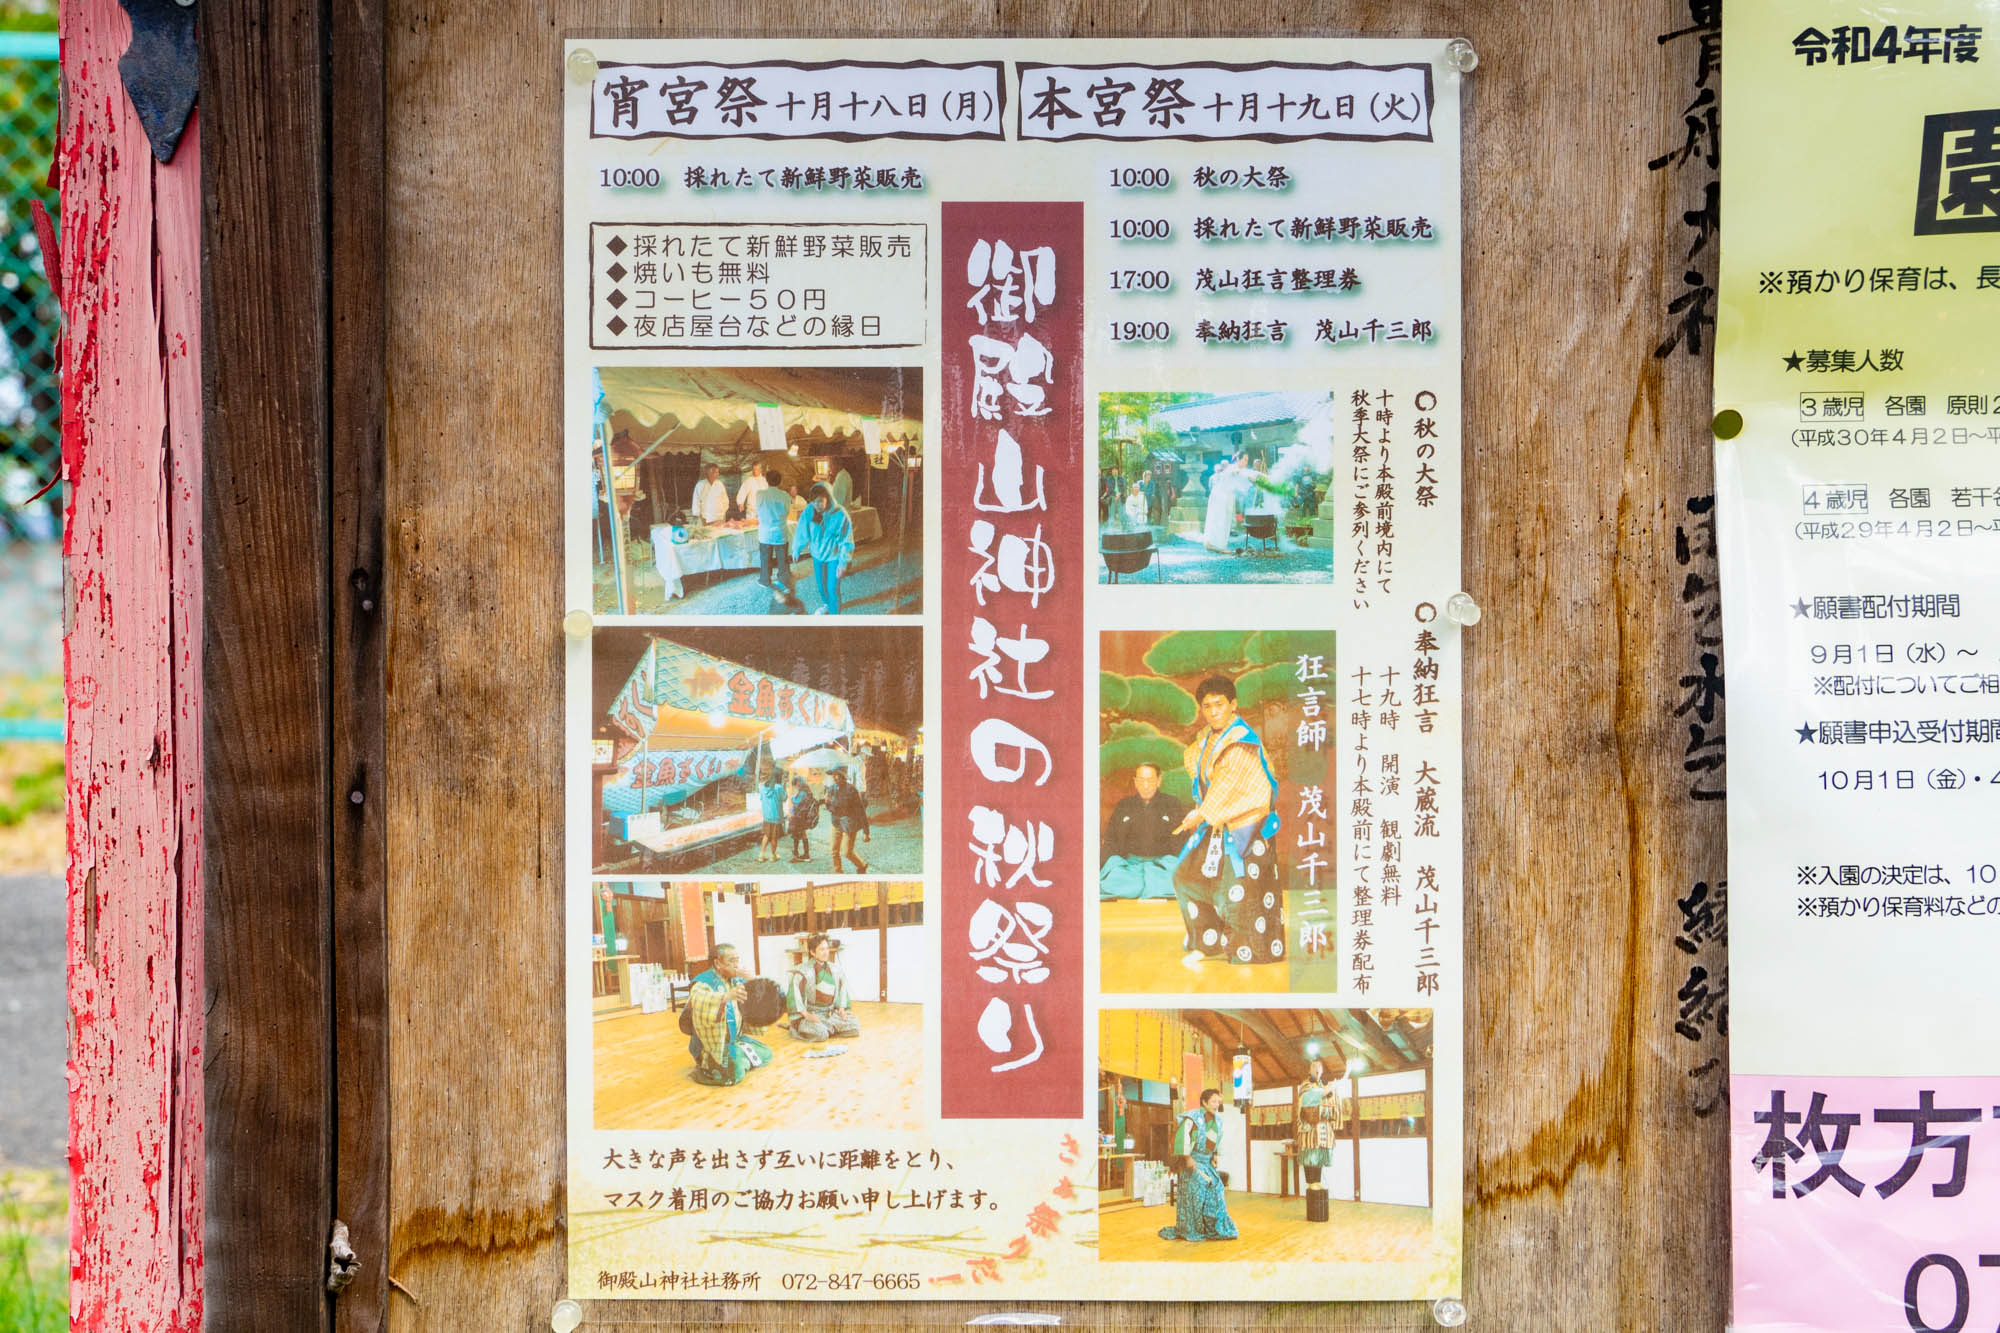 宵宮祭 十月十八日(月)
本宮祭 十月十九日(火)
10:00 採れたて新鮮野菜販売
◆採れたて新鮮野菜販売
◆焼いも無料
◆コーヒー５０円
◆夜店屋台などの縁日
10:00 秋の大祭
10:00 採れたて新鮮野菜販売
17:00 茂山狂言整理券
19:00 奉納狂言 茂山千三郎
御殿山神社の秋祭り
〇秋の大祭
十時より本殿前境内にて
秋季大祭にご参列ください
〇奉納狂言 大蔵流 茂山千三郎
十九時 開演 観劇無料
十七時より本殿前にて整理券配布
狂言師 茂山千三郎
金魚すくい
金魚すくい
大きな声を出さず互いに距離をとり、
マスク着用のご協力お願い申し上げます。
さぁ祭りだー!
御殿山神社社務所 072-847-6665
令和4年度
園
※預かり保育は、長
★募集人数
３歳児 各園 原則２
(平成３０年４月２日～平
４歳児 各園 若干名
(平成２９年４月２日～平
★願書配付期間
９月１日（水）～
※配付についてご相
★願書申込受付期間
１０月１日（金）・４
※入園の決定は、１０
※預かり保育料などの
枚方
07